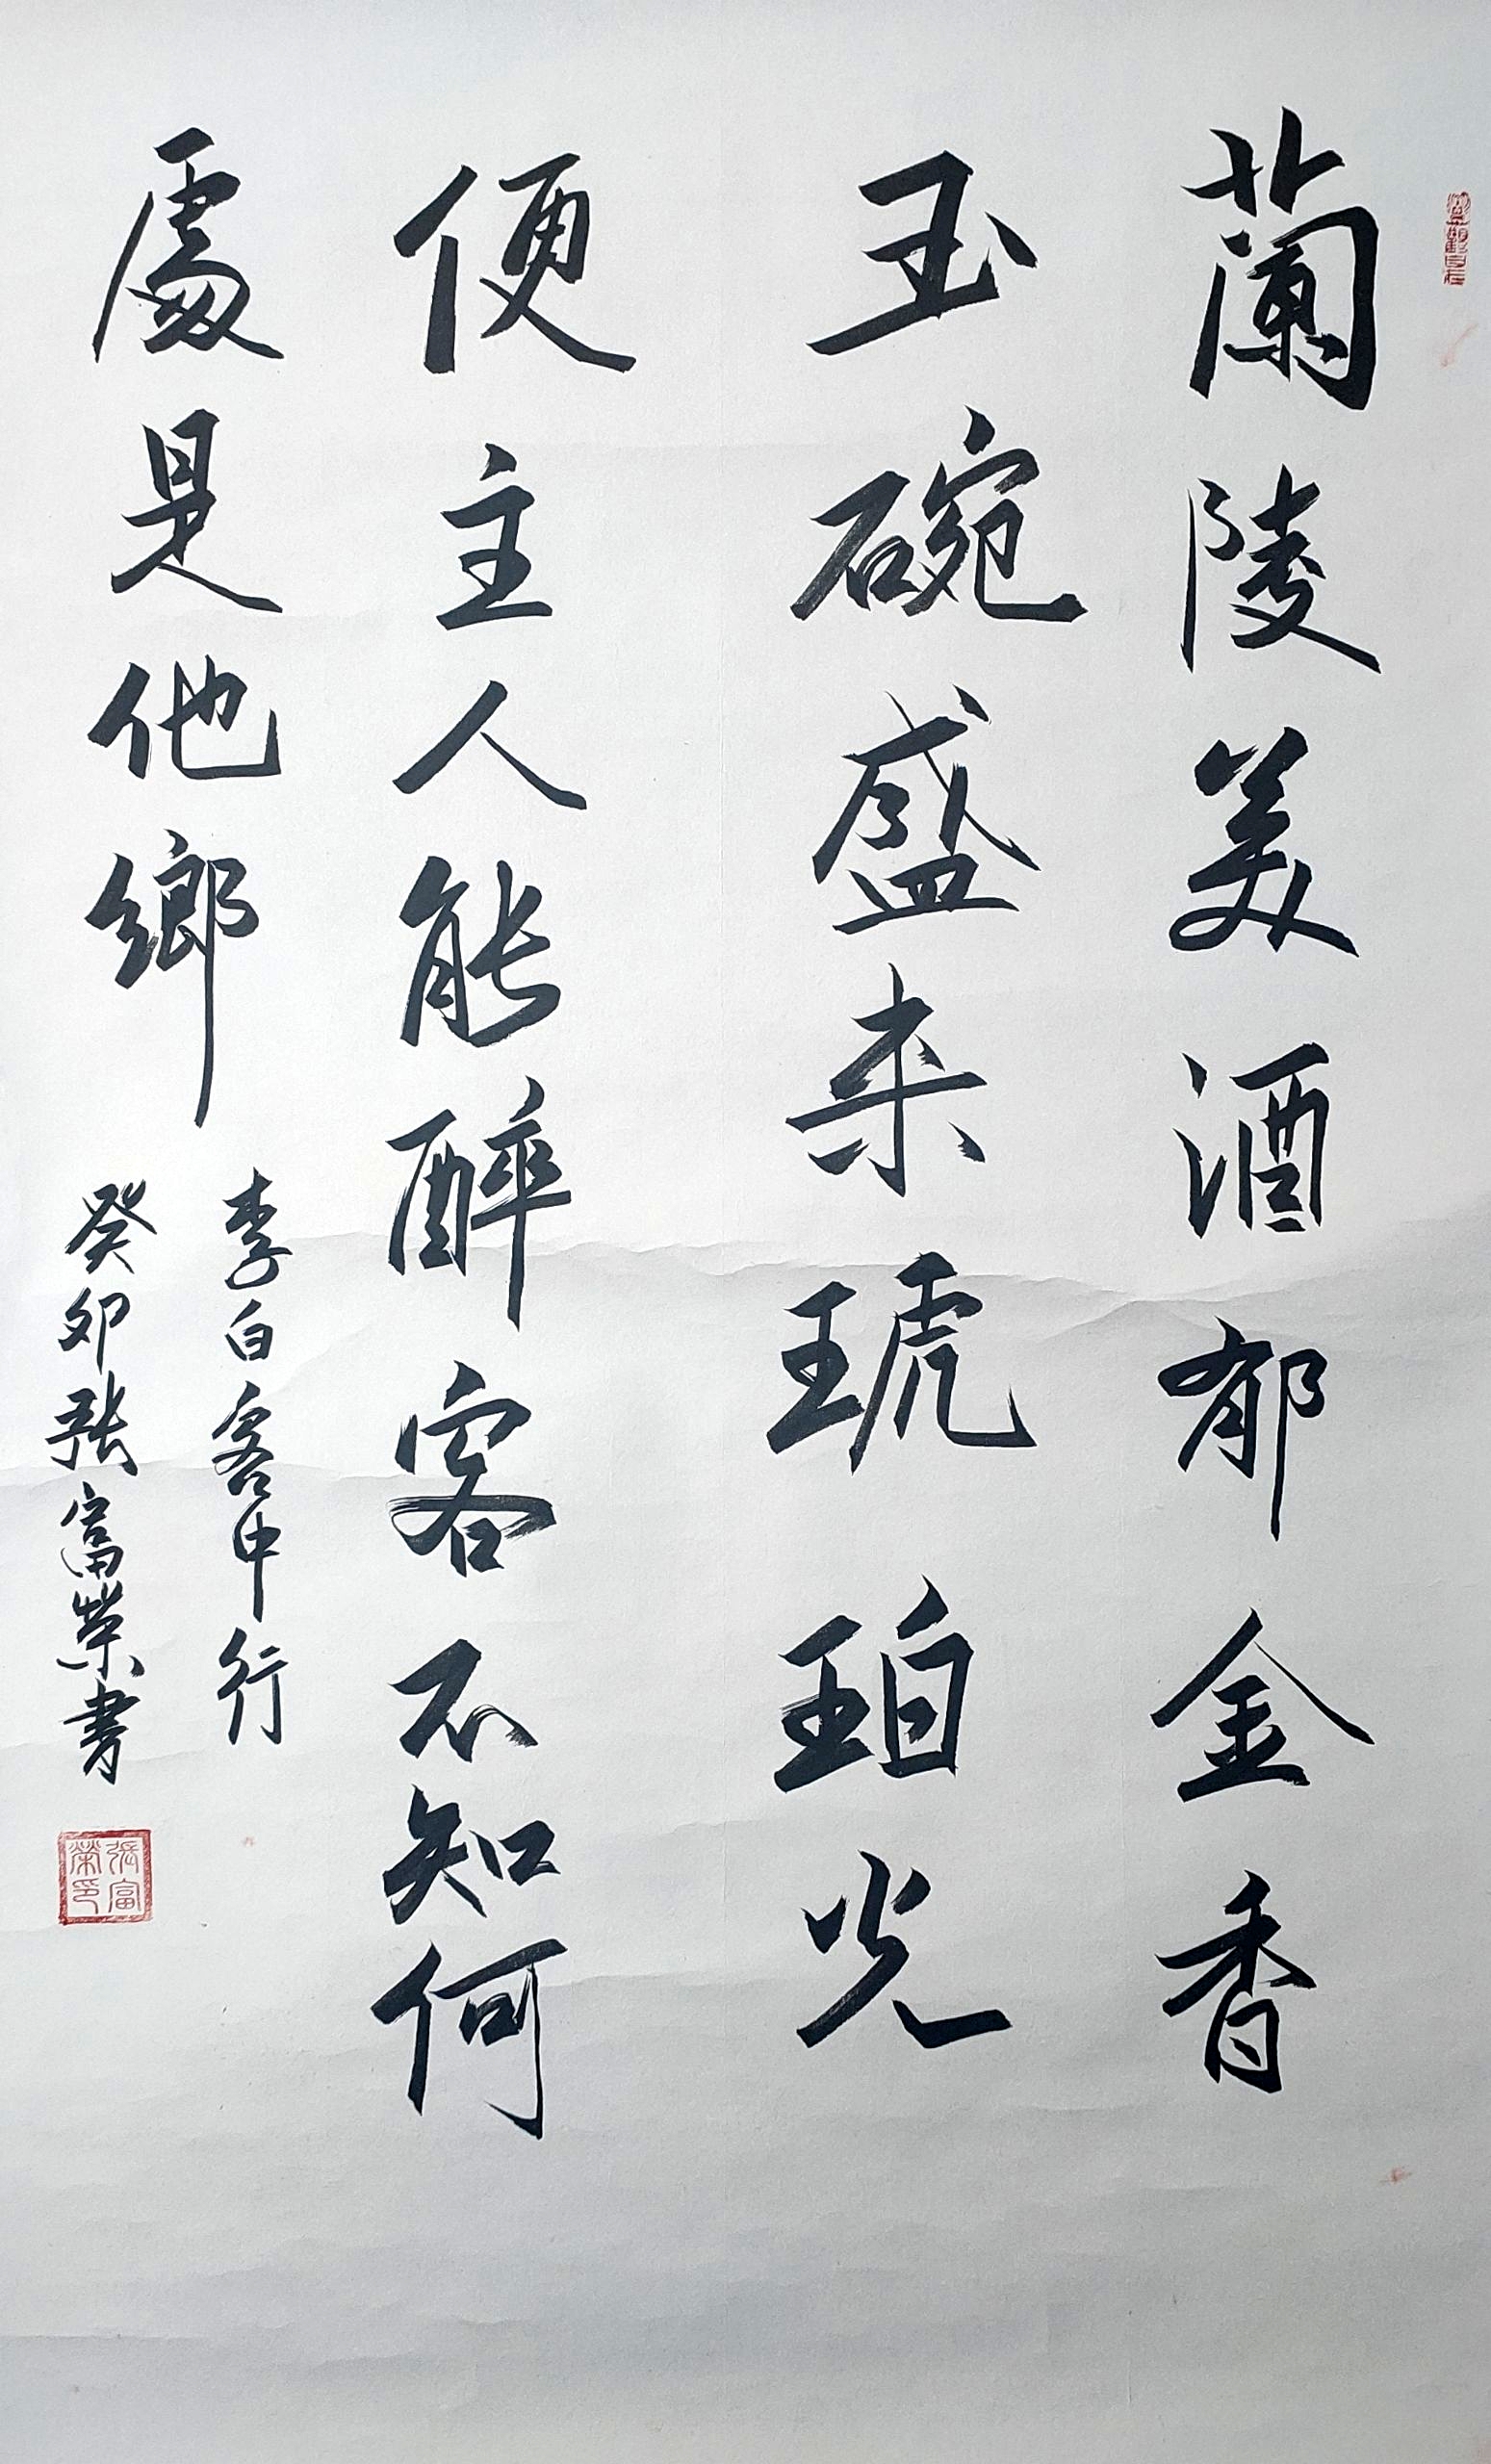 蘭陵美酒郁金香
玉碗盛来琥珀光
便主人能醉客不知何
處是他鄉
李白客中行
癸卯張富榮書
張富榮印